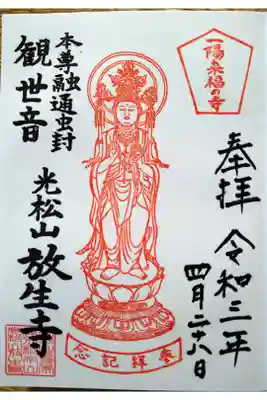 一陽来福の寺
奉拝
令和三年
四月二十八日
本尊融通虫封
観世音
光松山
放生寺
奉拝記念